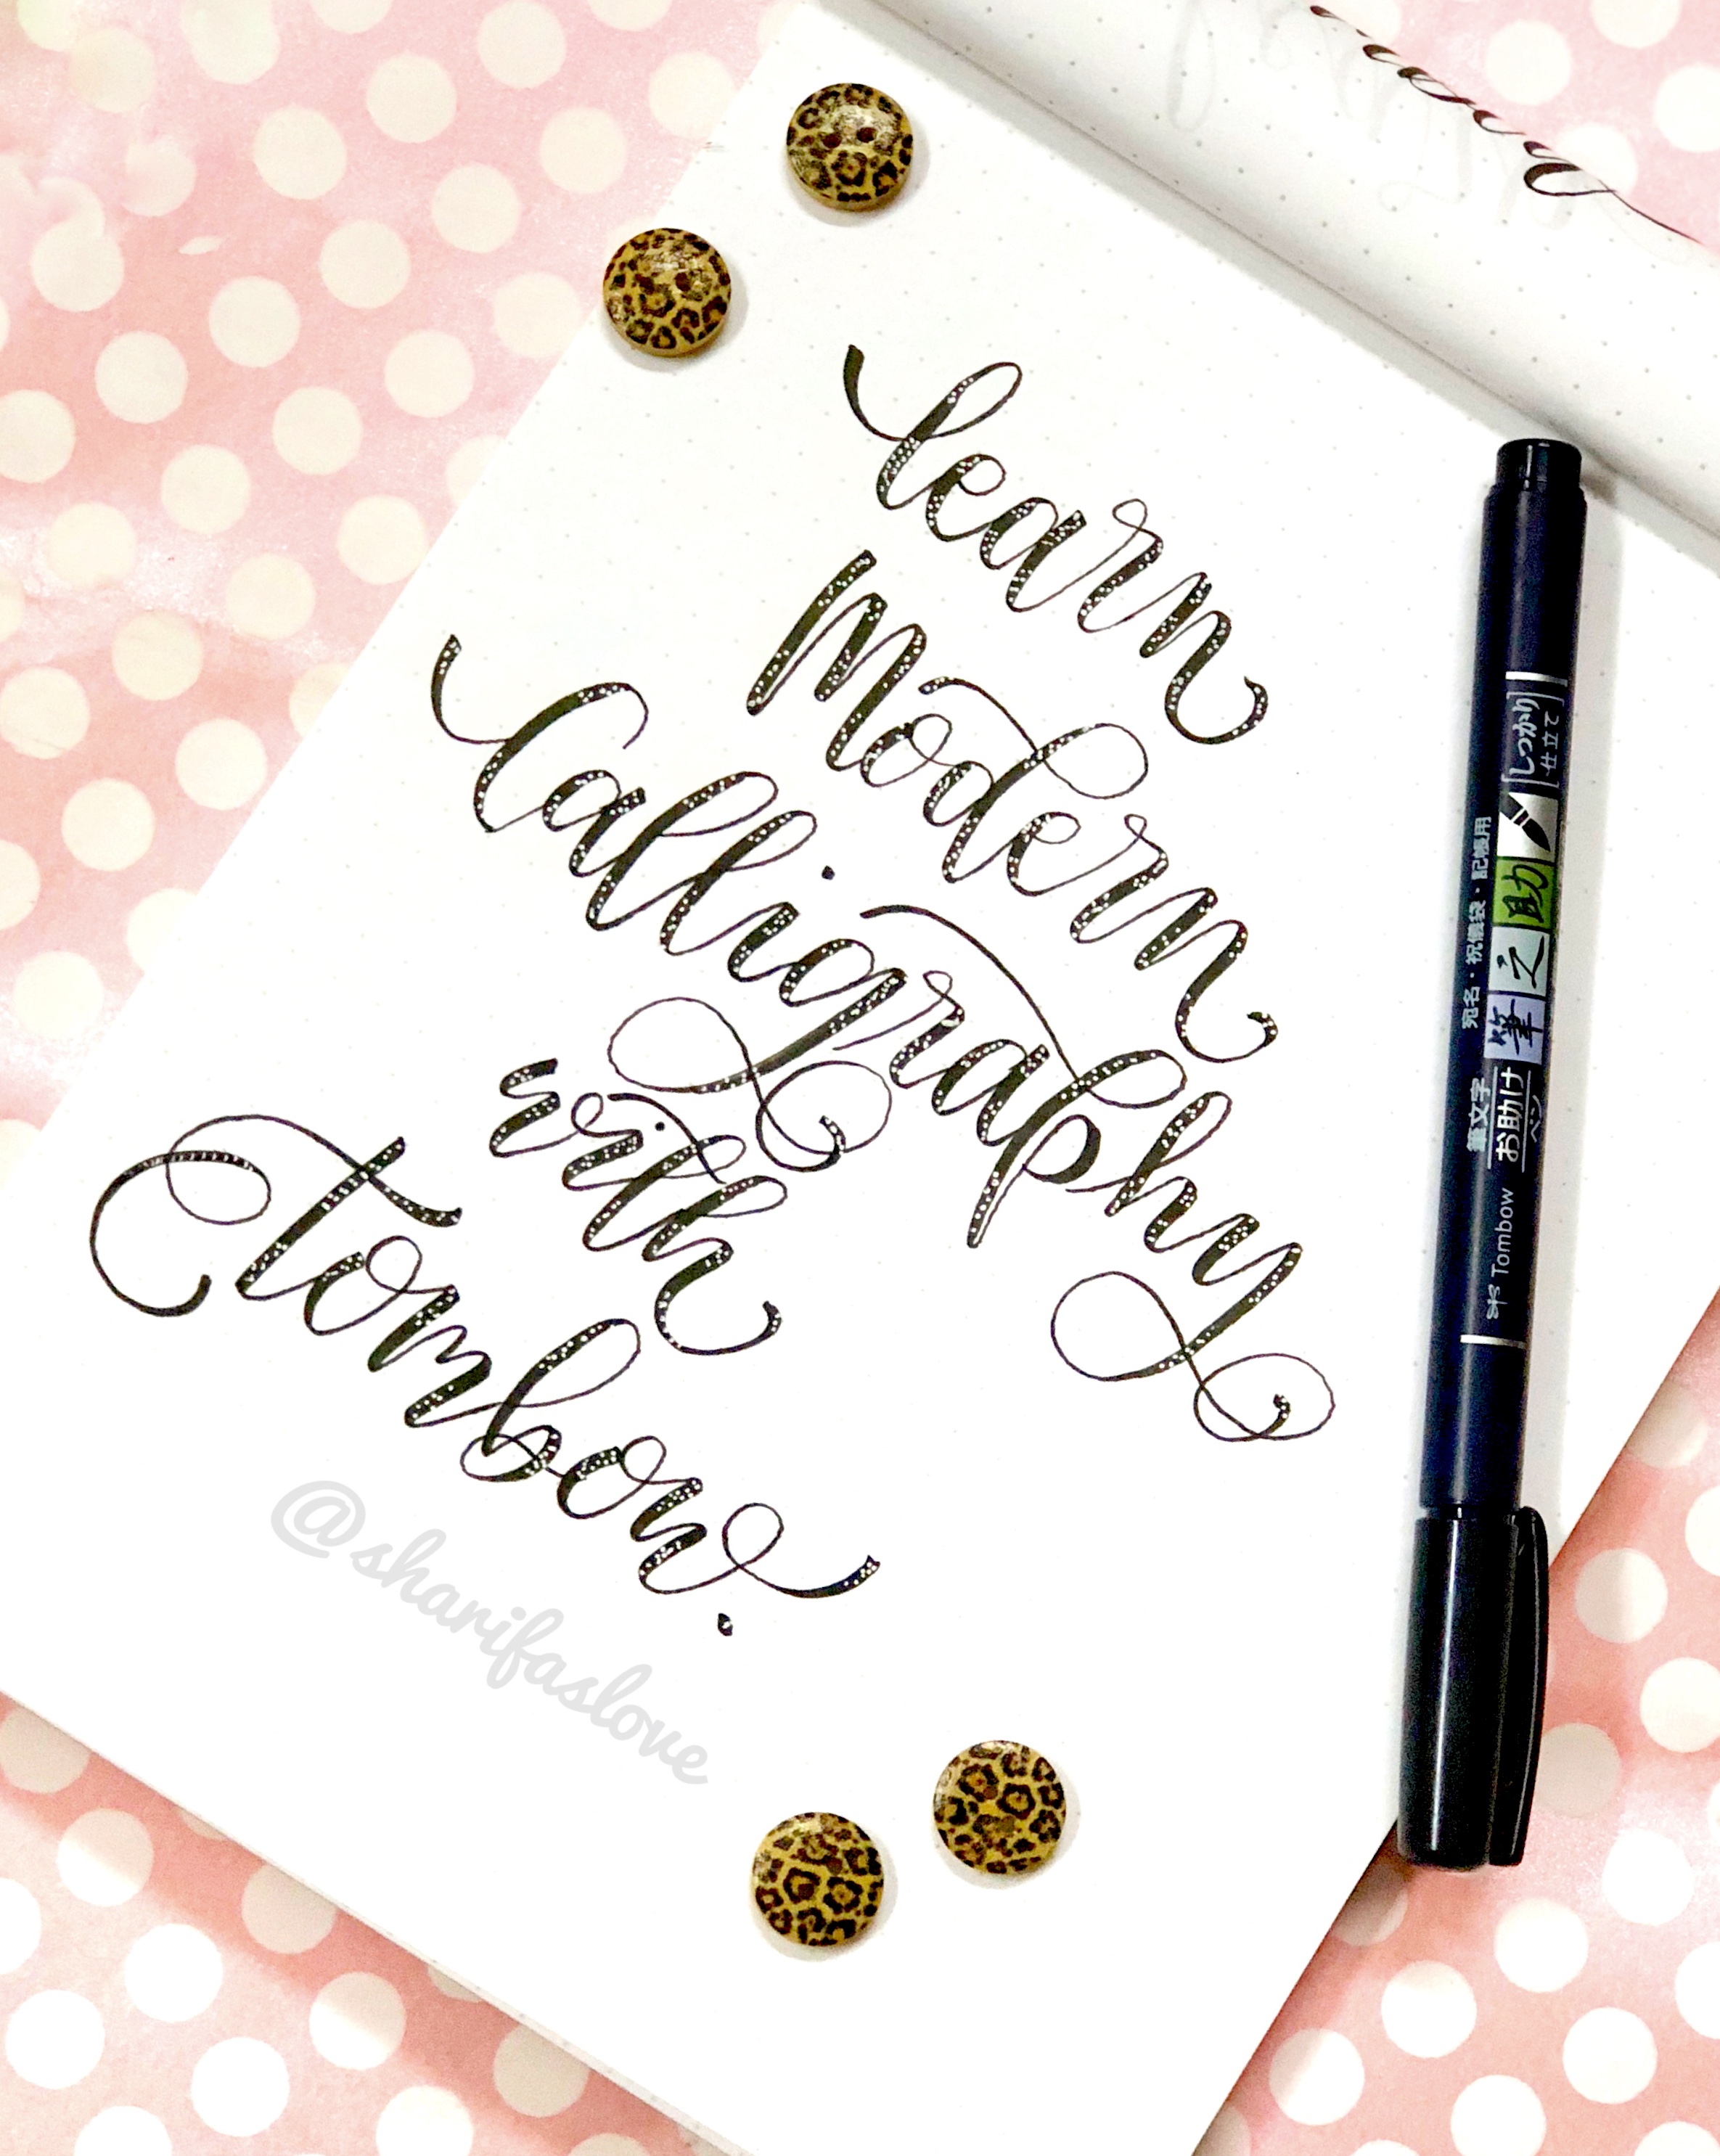 learn
modern
Calligraphy
with
Tombow.
@sharifaslove
[しっかり]
仕立て
宛名・祝儀袋・記帳用
筆之助
筆文字
お助け
ペン
Tombow